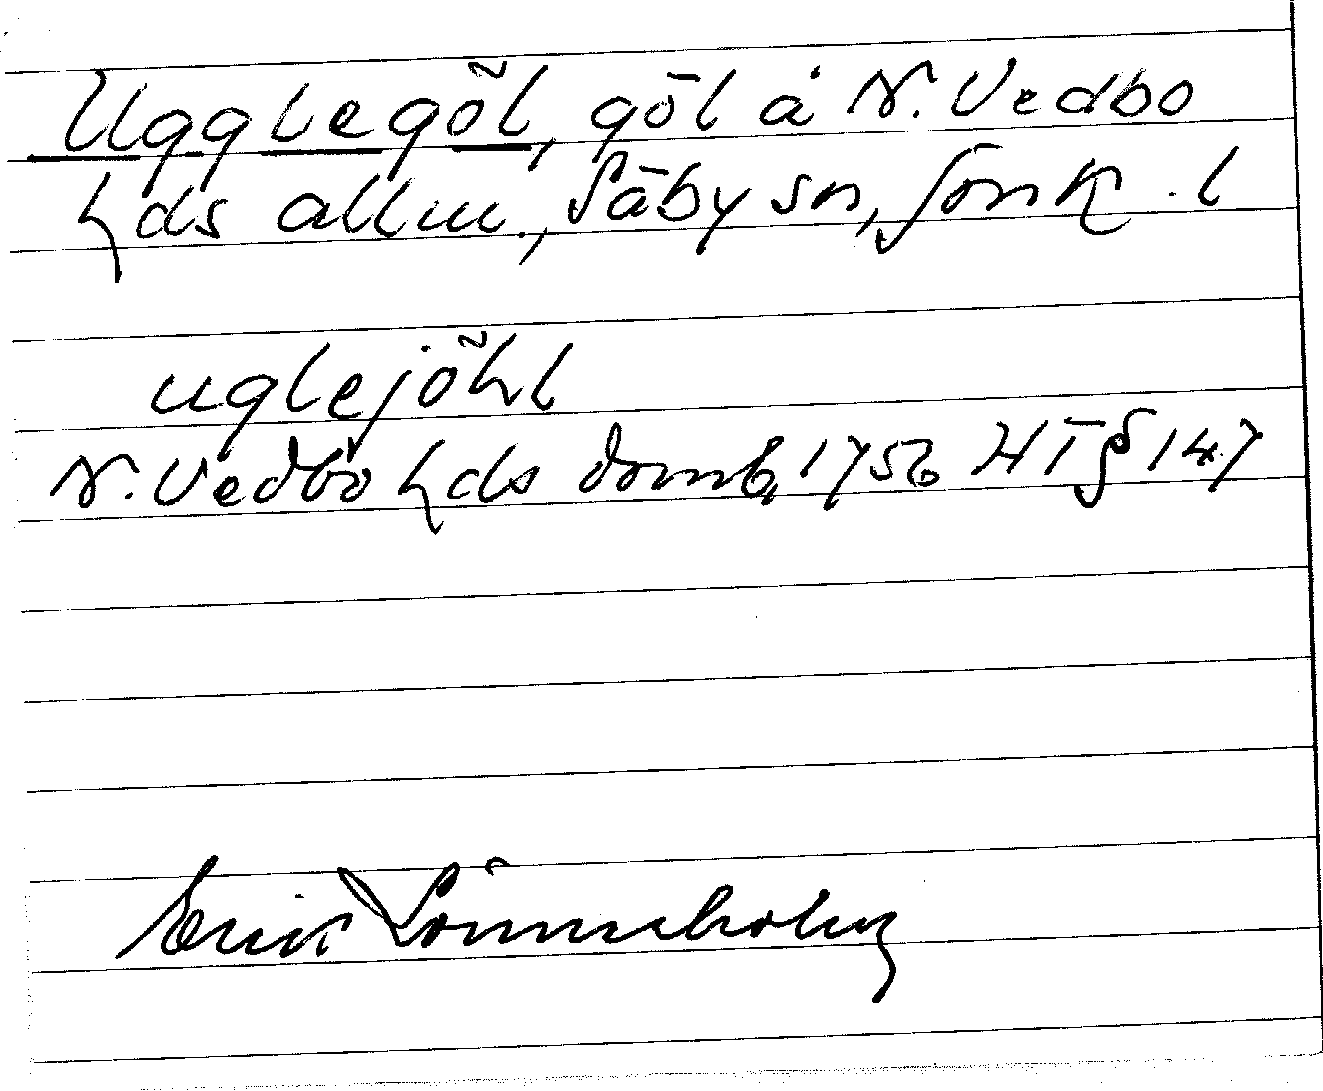 Ugglegöl, göl å N. Vedbo
hds allm., Säby sn, Jönk. l
uglejöhl
N. Vedbo hds domb, 1756 HT § 147
Erik Lönnerholm